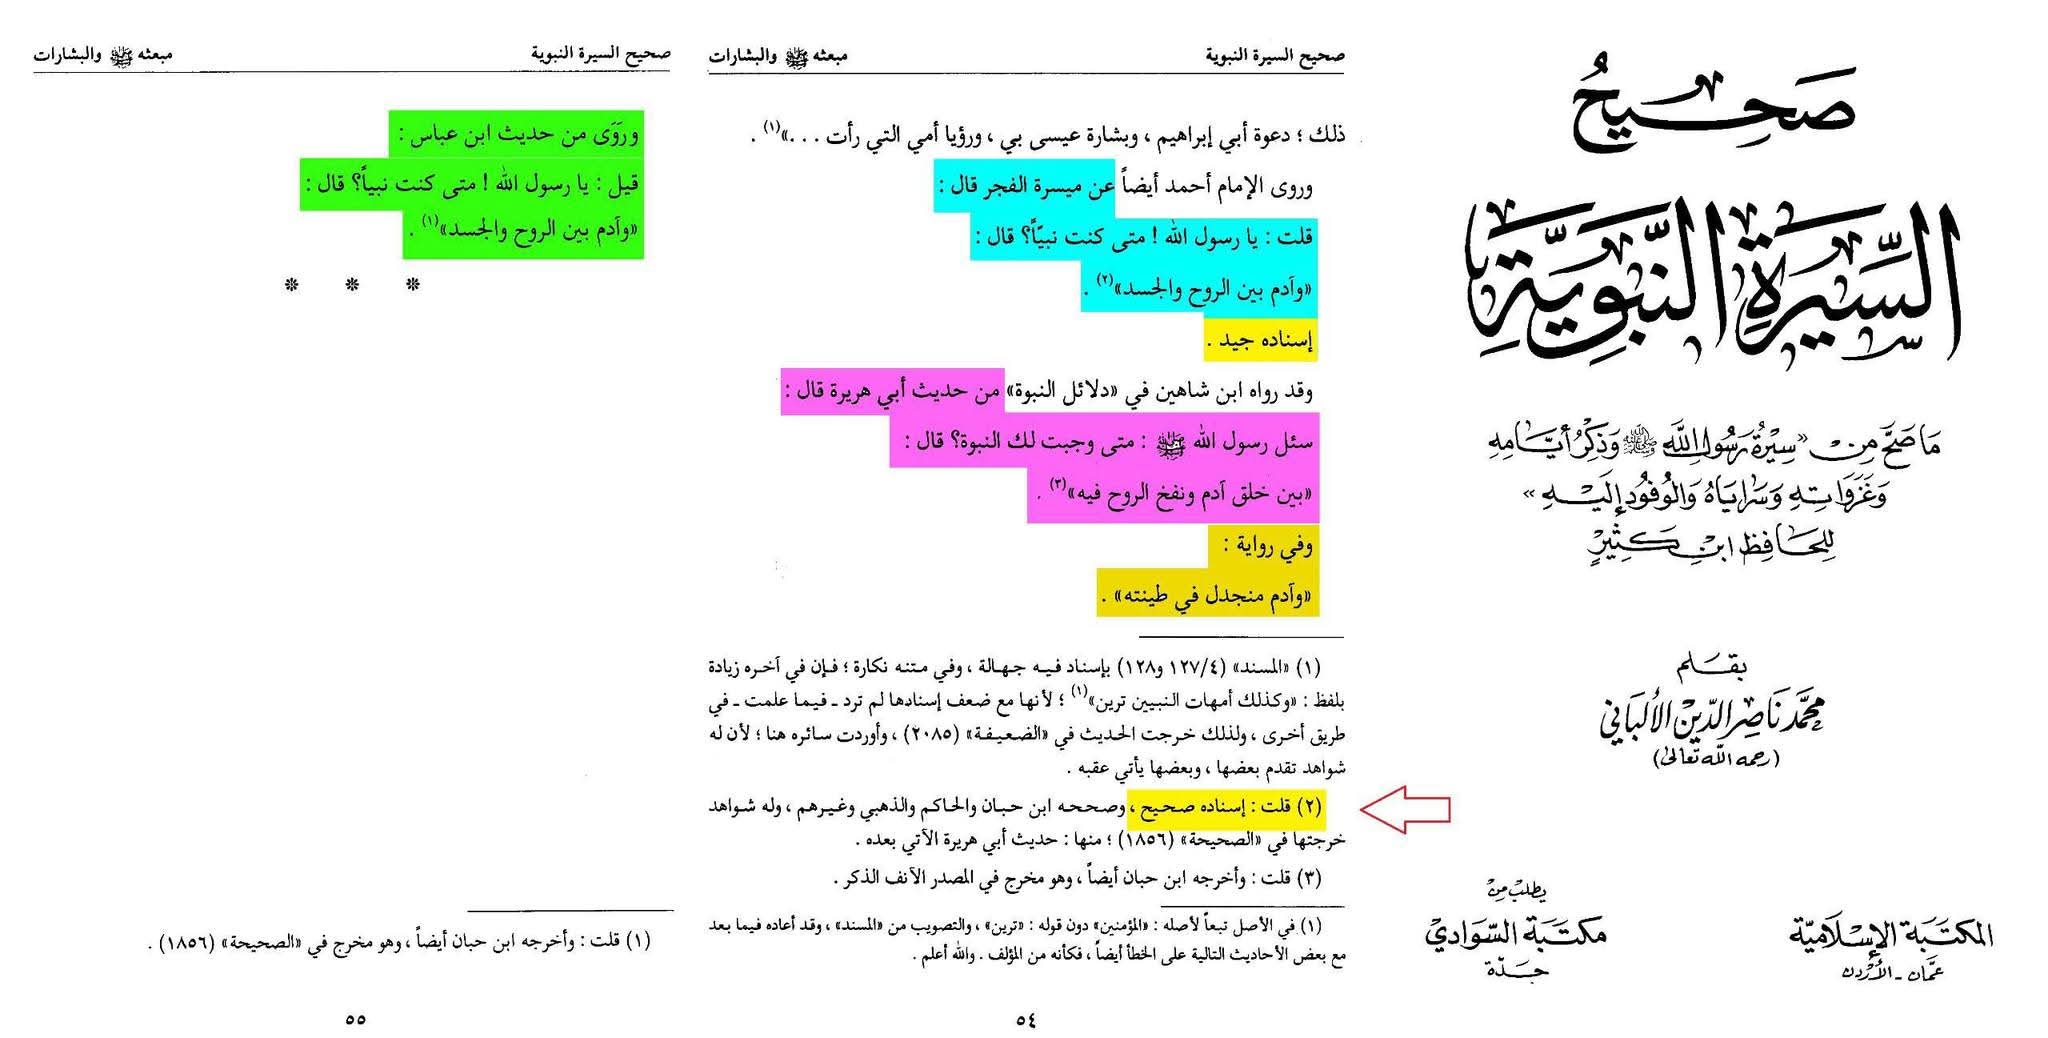 صَحِيحُ
السِّيرَةِ النَّبَوِيَّةِ
مَا صَحَّ مِنْ «سِيْرَةُ رَسُولِ اللَّهِ ﷺ وَذِكْرُ أيَّامِهِ
وَغَزَوَاتِهِ وَسَرَايَاهُ وَالوُفُودِ إِلَيْهِ»
لِلحَافِظِ ابنِ كَثِيْرٍ
بقَلَم
محمَّد نَاصِر الدِّين الألبَاني
(رحمه الله تعالى)
يطلب مِن
المكتَبَة الإسْلاميّة
عَمَّان - الأرْدن
مكتَبَة السَّوادي
جَدّة
صحيح السيرة النبوية
مبعثه ﷺ والبشارات
ذلك ؛ دعوة أبي إبراهيم ، وبشارة عيسى بي ، ورؤيا أمي التي رأت . . .»(١) .
وروى الإمام أحمد أيضاً عن ميسرة الفجر قال :
قلت : يا رسول الله ! متى كنت نبيّاً؟ قال :
«وآدم بين الروح والجسد»(٢) .
إسناده جيد .
وقد رواه ابن شاهين في «دلائل النبوة» من حديث أبي هريرة قال :
سئل رسول الله ﷺ : متى وجبت لك النبوة؟ قال :
«بين خلق آدم ونفخ الروح فيه»(٣) .
وفي رواية :
«وآدم منجدل في طينته» .
(١) «المسند» (٤/ ١٢٧ و١٢٨) بإسناد فيه جهالة ، وفي متنه نكارة ؛ فإن في آخره زيادة
بلفظ : «وكذلك أمهات النبيين ترين»(١) ؛ لأنها مع ضعف إسنادها لم ترد ـ فيما علمت ـ في
طريق أخرى ، ولذلك خرجت الحديث في «الضعيفة» (٢٠٨٥) ، وأوردت سائره هنا ؛ لأن له
شواهد تقدم بعضها ، وبعضها يأتي عقبه .
(٢) قلت : إسناده صحيح ، وصححه ابن حبان والحاكم والذهبي وغيرهم ، وله شواهد
خرجتها في «الصحيحة» (١٨٥٦) ؛ منها : حديث أبي هريرة الآتي بعده .
(٣) قلت : وأخرجه ابن حبان أيضاً ، وهو مخرج في المصدر الآنف الذكر .
(١) في الأصل تبعاً لأصله : «المؤمنين» دون قوله : «ترين» ، والتصويب من «المسند» ، وقد أعاده فيما بعد
مع بعض الأحاديث التالية على الخطأ أيضاً ، فكأنه من المؤلف . والله أعلم .
٥٤
صحيح السيرة النبوية
مبعثه ﷺ والبشارات
ورَوَى من حديث ابن عباس :
قيل : يا رسول الله ! متى كنت نبياً؟ قال :
«وآدم بين الروح والجسد»(١) .
(١) قلت : وأخرجه ابن حبان أيضاً ، وهو مخرج في «الصحيحة» (١٨٥٦) .
٥٥